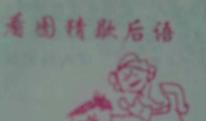 看图猜歇后语